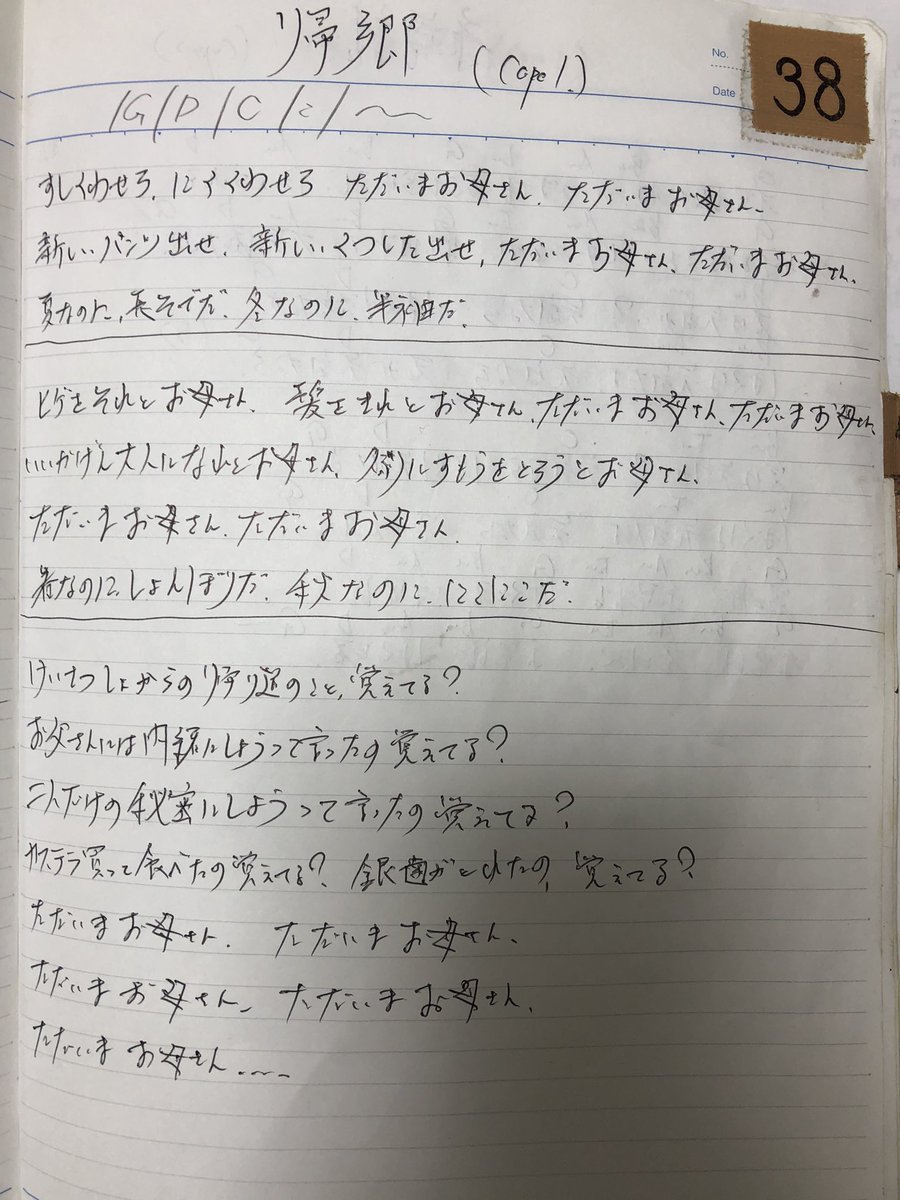 帰郷 (Capo 1.)
No.
Date
38
/G/D/C/〃/〜
すしくわせろ、にくくわせろ ただいまお母さん、ただいまお母さん、
新しいパンツ出せ、新しいくつした出せ、ただいまお母さん、ただいまお母さん、
夏なのに、長そでだ、冬なのに、半袖だ、
ヒゲをそれとお母さん、髪をきれとお母さん、ただいまお母さん、ただいまお母さん、
いいかげん大人になれとお母さん、久々にすもうをとろうとお母さん、
ただいまお母さん、ただいまお母さん、
春なのに、しょんぼりだ、秋なのに、にこにこだ、
けいさつしょからの帰り道のこと、覚えてる?
お父さんには内緒にしようって言ったの覚えてる?
二人だけの秘密にしようって言ったの覚えてる?
カステラ買って食べたの覚えてる? 銀歯がとれたの、覚えてる?
ただいまお母さん、ただいまお母さん、
ただいまお母さん、ただいまお母さん、
ただいまお母さん....